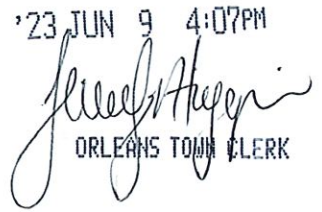 '23 JUN 9 4:07PM
ORLEANS TOWN CLERK